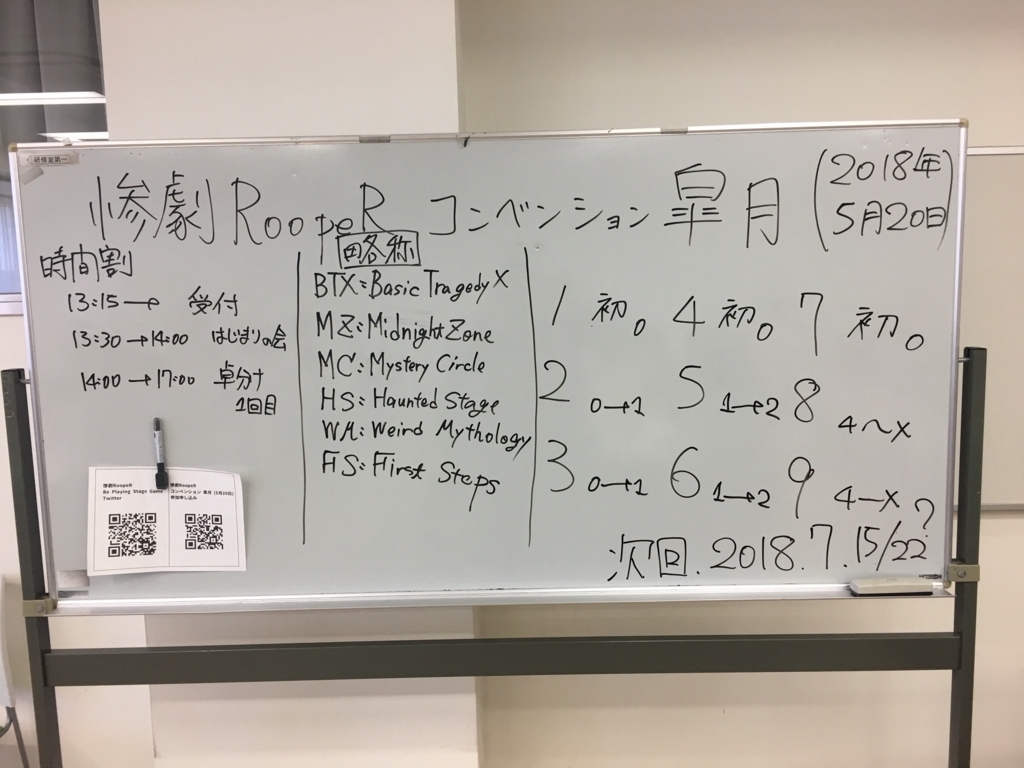 研修室第一
惨劇RoopeR コンベンション 皐月 (2018年5月20日)
時間割
13:15→ 受付
13:30→14:00 はじまりの会
14:00→17:00 卓分け
1回目
惨劇RoopeR
Be Playing Stage Game
Twitter
惨劇RoopeR
コンベンション 皐月 (5月20日)
参加申し込み
略各称
BTX:Basic Tragedy X
MZ:Midnight Zone
MC:Mystery Circle
HS:Haunted Stage
WM:Weird Mythology
FS:First Steps
1 初。 4 初。 7 初。
2 0→1 5 1→2 8 4〜X
3 0→1 6 1→2 9 4−X
次回.2018.7.15/22?